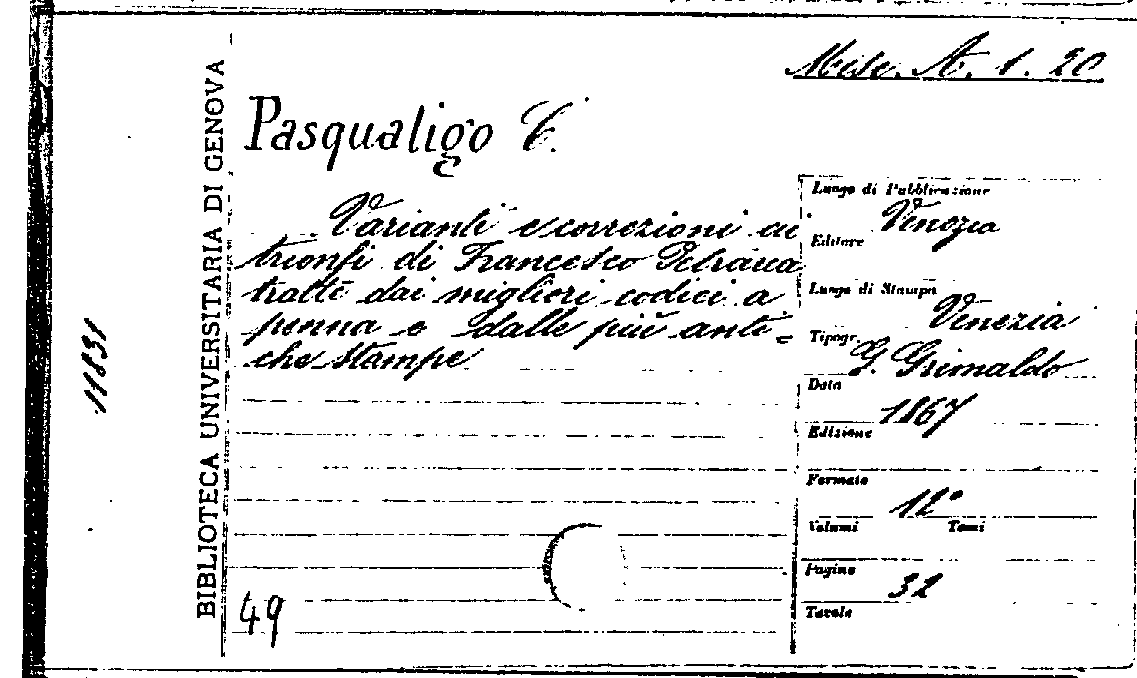 Misc. A. 1. 20
BIBLIOTECA UNIVERSITARIA DI GENOVA
11831
Pasqualigo C.
Varianti e correzioni ai
trionfi di Francesco Petrarca
tratte dai migliori codici a
penna e dalle più anti-
che stampe
49
Luogo di Pubblicazione
Venezia
Editore
Luogo di Stampa
Venezia
Tipogr.
G. Grimaldo
Data
1867
Edizione
Formato
12°
Volumi Tomi
Pagine
32
Tavole